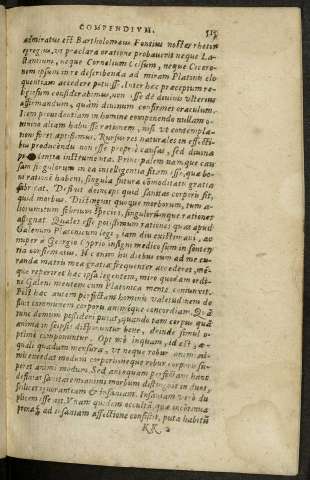 COMPENDIVM.
515
admiratus est Bartholomæus Fontius noster rhetor
egregius, ut præclara oratione probauerit neque La-
ctantium, neque Cornelium Celsum, neque Cicero-
nem ipsum in re describenda ad miram Platonis elo
quentiam accedere potuisse. Inter hæc præceptum re-
ligiosum considerabimus, non esse de diuinis ulterius
affirmandum, quàm diuinum confirmet oraculum.
Item prouidentiam in homine componendo nullam o-
mnino aliam habuisse rationem, nisi ut contempla-
tioni foret aptissimus. Rursus res naturales in effecti-
bus producendis non esse propriè causas, sed diuinæ
prouidentiæ instrumenta. Principalem namque cau-
sam singulorum in ea intelligentia sitam esse, quæ bo-
ni rationē habens, singula futura cōmoditati gratia
fabricat. Definit deinceps quid sanitas corporis sit,
quid morbus. Distinguit quoque morborum, tum a-
liorum, tum febrium species, singulorumque rationes
assignat. Quales esse potissimum rationes quæ apud
Galenum
ac
nuper à Georgio Cyprio insigni medico sum in senten
tia confirmatus. Is enim his diebus cum ad me cu-
randæ matris meæ gratia frequenter accederet, mē-
que reperiret hæc ipsa legentem, miro quodam ordi-
ne Galeni mentem cum Platonica mente coniunxit.
Post hæc autem perfectam hominis ualetudinem de
finit communem corporis animæque concordiam. Quā
tunc demum possideri putat, quando tam corpus quā
anima in seipsis disponuntur bene, deinde simul o-
ptimè componuntur. Opt mò inquam, id est, æ-
quali quadam mensura, ut neque robur animi ni-
mis excedat modum corporis, neque robur corporis su-
peret animi modum. Sed antequam perfectam hanc
definiat sanitatem, animi morbum distinguit in duas,
scilicet ignorantiam & insaniam. Insaniam uerò du-
plicem esse ait. Vnam quidem occultā, quæ in
prona ad insaniam affectione consistit, puta habitū
KK 2